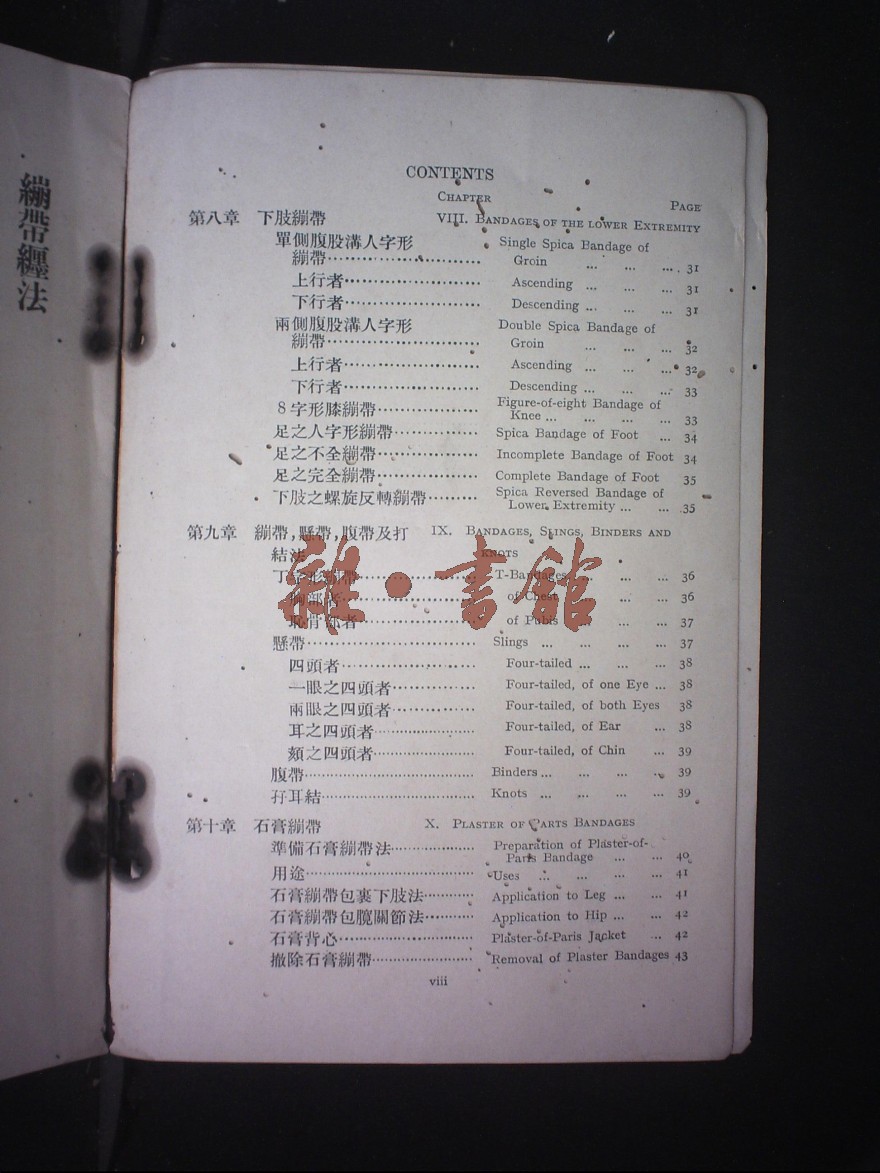 繃帶纏法
CONTENTS
CHAPTER PAGE
第八章 下肢繃帶 VIII. BANDAGES OF THE LOWER EXTREMITY
單側腹股溝人字形 Single Spica Bandage of
繃帶 Groin ... ... ... 31
上行者 Ascending ... ... ... 31
下行者 Descending ... ... ... 31
兩側腹股溝人字形 Double Spica Bandage of
繃帶 Groin ... ... ... 32
上行者 Ascending ... ... ... 32
下行者 Descending ... ... ... 33
8字形膝繃帶 Figure-of-eight Bandage of
Knee ... ... ... ... 33
足之人字形繃帶 Spica Bandage of Foot ... 34
足之不全繃帶 Incomplete Bandage of Foot 34
足之完全繃帶 Complete Bandage of Foot 35
下肢之螺旋反轉繃帶 Spica Reversed Bandage of
Lower Extremity ... ... 35
第九章 繃帶,懸帶,腹帶及打 IX. BANDAGES, SLINGS, BINDERS AND
結法 KNOTS
丁字形繃帶 T-Bandages ... ... ... 36
胸部者 of Chest ... ... 36
恥骨部者 of Pubis ... ... 37
懸帶 Slings ... ... ... ... 37
四頭者 Four-tailed ... ... ... 38
一眼之四頭者 Four-tailed, of one Eye ... 38
兩眼之四頭者 Four-tailed, of both Eyes 38
耳之四頭者 Four-tailed, of Ear ... 38
頦之四頭者 Four-tailed, of Chin ... 39
腹帶 Binders ... ... ... ... 39
孖耳結 Knots ... ... ... ... 39
第十章 石膏繃帶 X. PLASTER OF PARTS BANDAGES
準備石膏繃帶法 Preparation of Plaster-of-
Parts Bandage ... ... 40
用途 Uses ... ... ... ... 41
石膏繃帶包裹下肢法 Application to Leg ... ... 41
石膏繃帶包髖關節法 Application to Hip ... ... 42
石膏背心 Plaster-of-Paris Jacket ... 42
撤除石膏繃帶 Removal of Plaster Bandages 43
viii
雜·書館